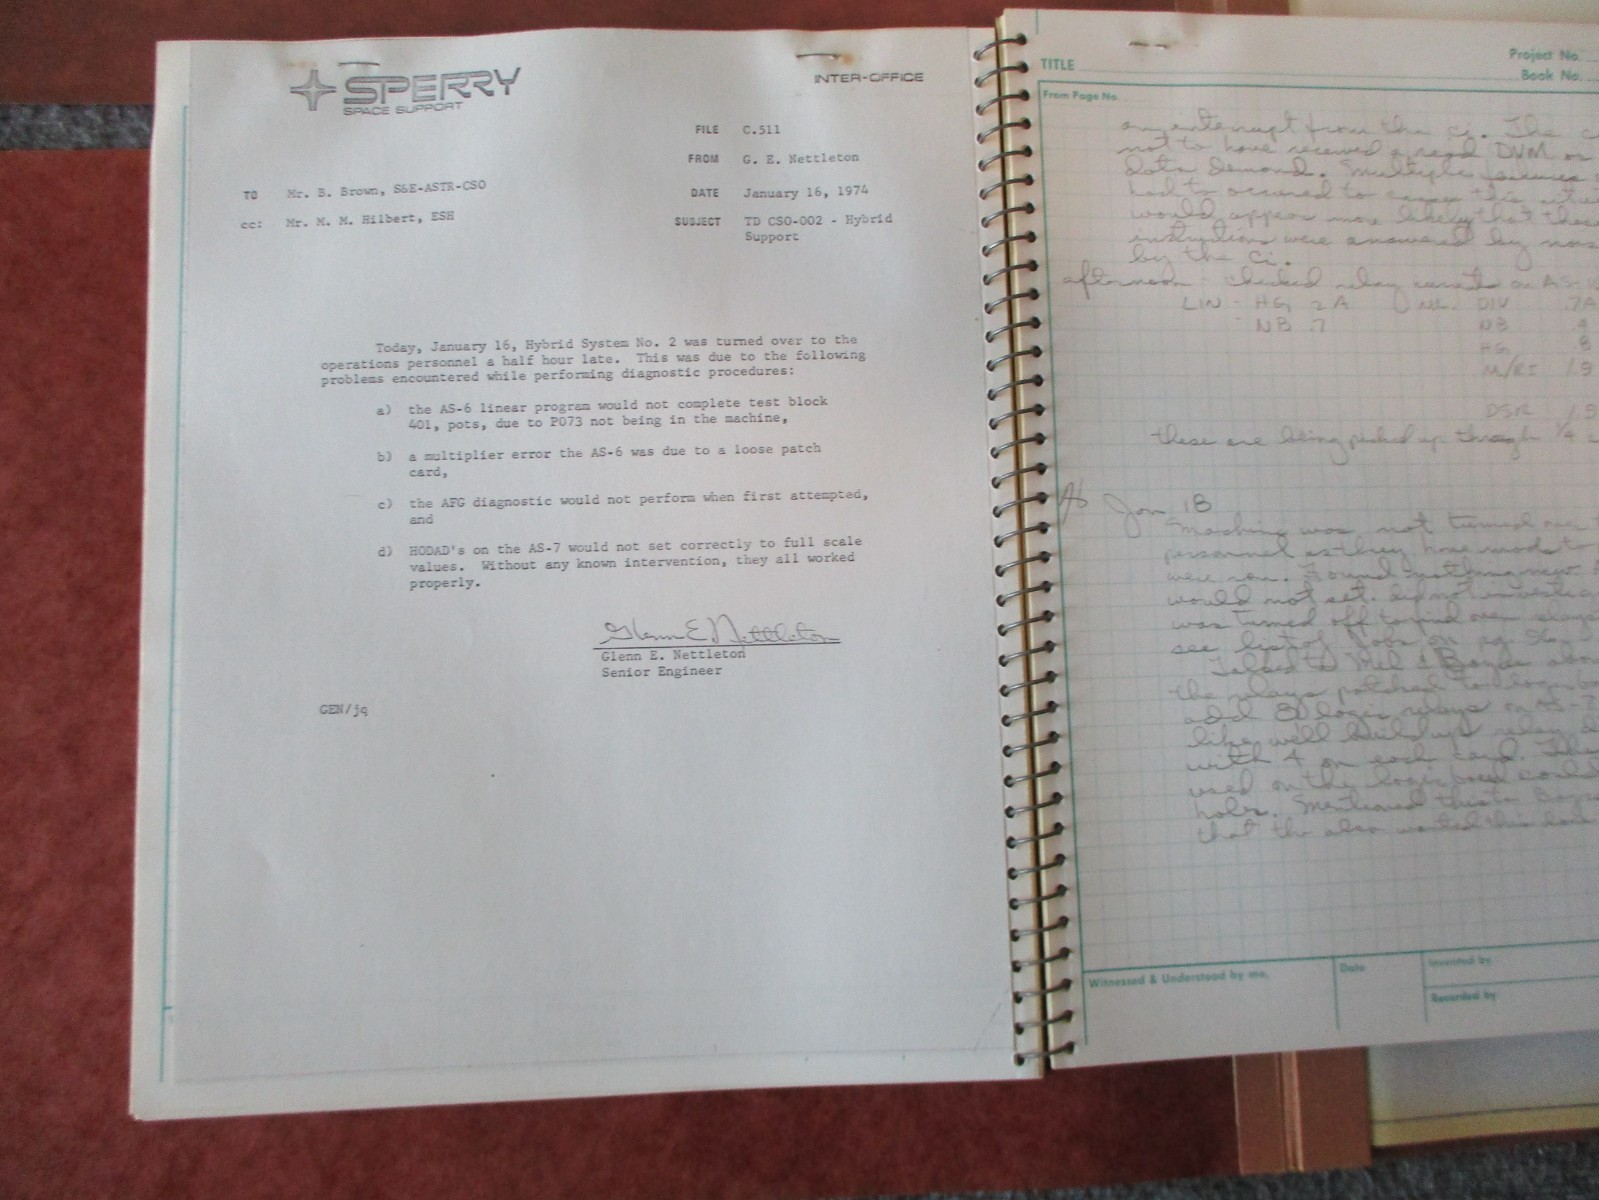 SPERRY
SPACE SUPPORT
INTER-OFFICE
FILE C.511
FROM G. E. Nettleton
TO Mr. B. Brown, S&E-ASTR-CSO
DATE January 16, 1974
cc: Mr. M. M. Hilbert, ESH
SUBJECT TD CSO-002 - Hybrid
Support
Today, January 16, Hybrid System No. 2 was turned over to the
operations personnel a half hour late. This was due to the following
problems encountered while performing diagnostic procedures:
a) the AS-6 linear program would not complete test block
401, pots, due to P073 not being in the machine,
b) a multiplier error the AS-6 was due to a loose patch
card,
c) the AFG diagnostic would not perform when first attempted,
and
d) HODAD's on the AS-7 would not set correctly to full scale
values. Without any known intervention, they all worked
properly.
Glenn E. Nettleton
Glenn E. Nettleton
Senior Engineer
GEN/jq
TITLE
Project No.
Book No.
From Page No.
an interrupt from the ci. The
not to have received a read DVM or
data demand. Multiple failures
had to occured to cause this
would appear more likely that these
instructions were answered by
by the ci.
afternoon - checked relay on AS-
LIN - HG 2A NL DIV .7A
NB .7 NB
HG .8
M/RI 1.9
DSR
these are being picked up through 1/4
Jan 18
Maching was not turned over
personnel as they have mods to
were run. Found nothing new.
would not set. did not investig
was turned off to find over
see list of jobs on
Talked to Mel & Boyce abou
the relays patched to logic
add 80 logic relays on AS-7
like well build up relay
with 4 on each card. The
used on the logic could
holes. Mentioned this to
that the also wanted this
Witnessed & Understood by me,
Date
Invented by
Recorded by